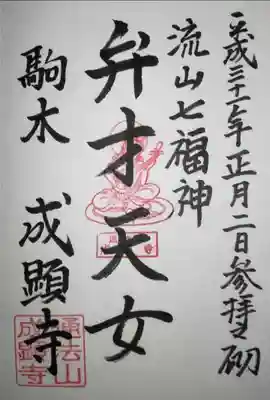 平成三十一年正月二日参拝砌
流山七福神
弁才天女
駒木 成顕寺